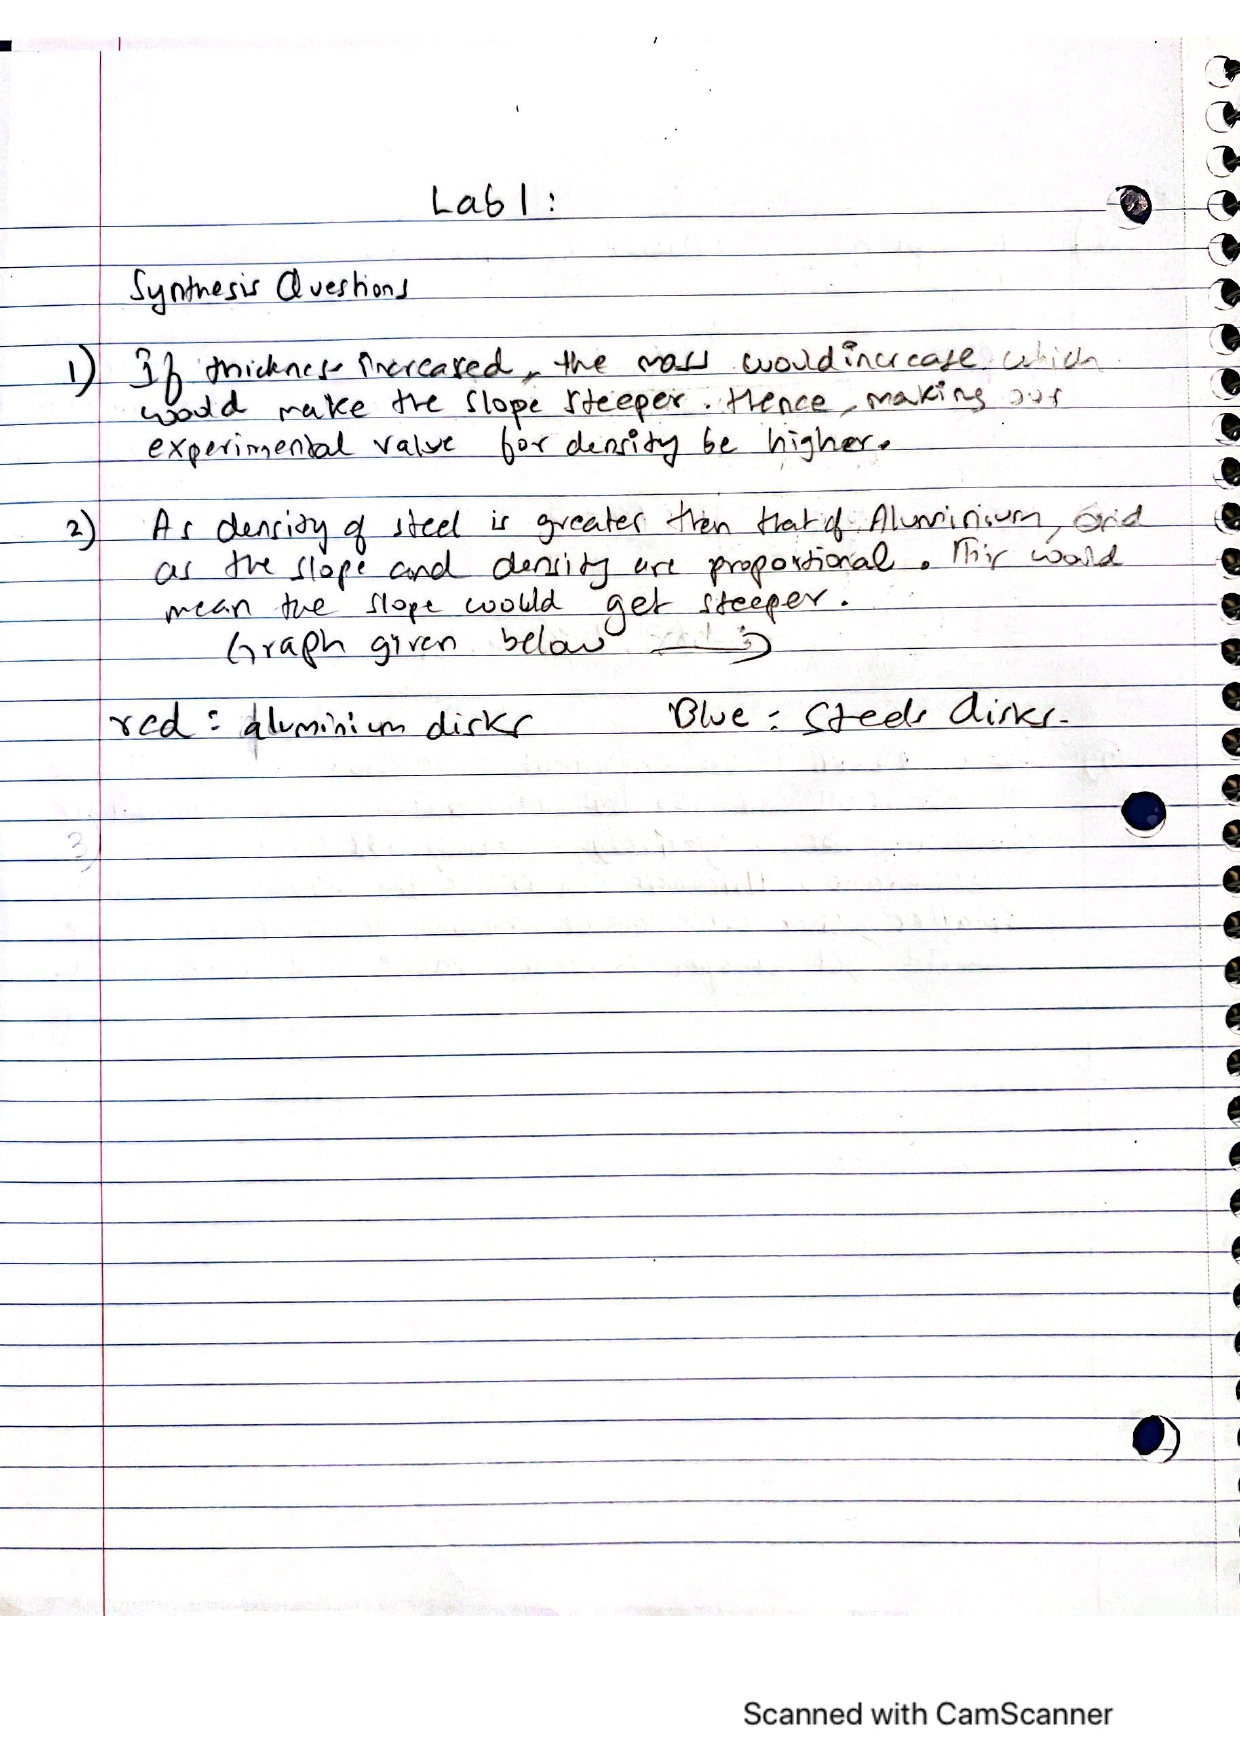 Lab 1:
Synthesis Questions
1) If thickness increased, the mass would increase which
would make the slope steeper. Hence, making our
experimental value for density be higher.
2) As density of steel is greater then that of Aluminium, and
as the slope and density are proportional. This would
mean the slope would get steeper.
Graph given below
red = aluminium disks Blue = Steels disks.
3)
Scanned with CamScanner